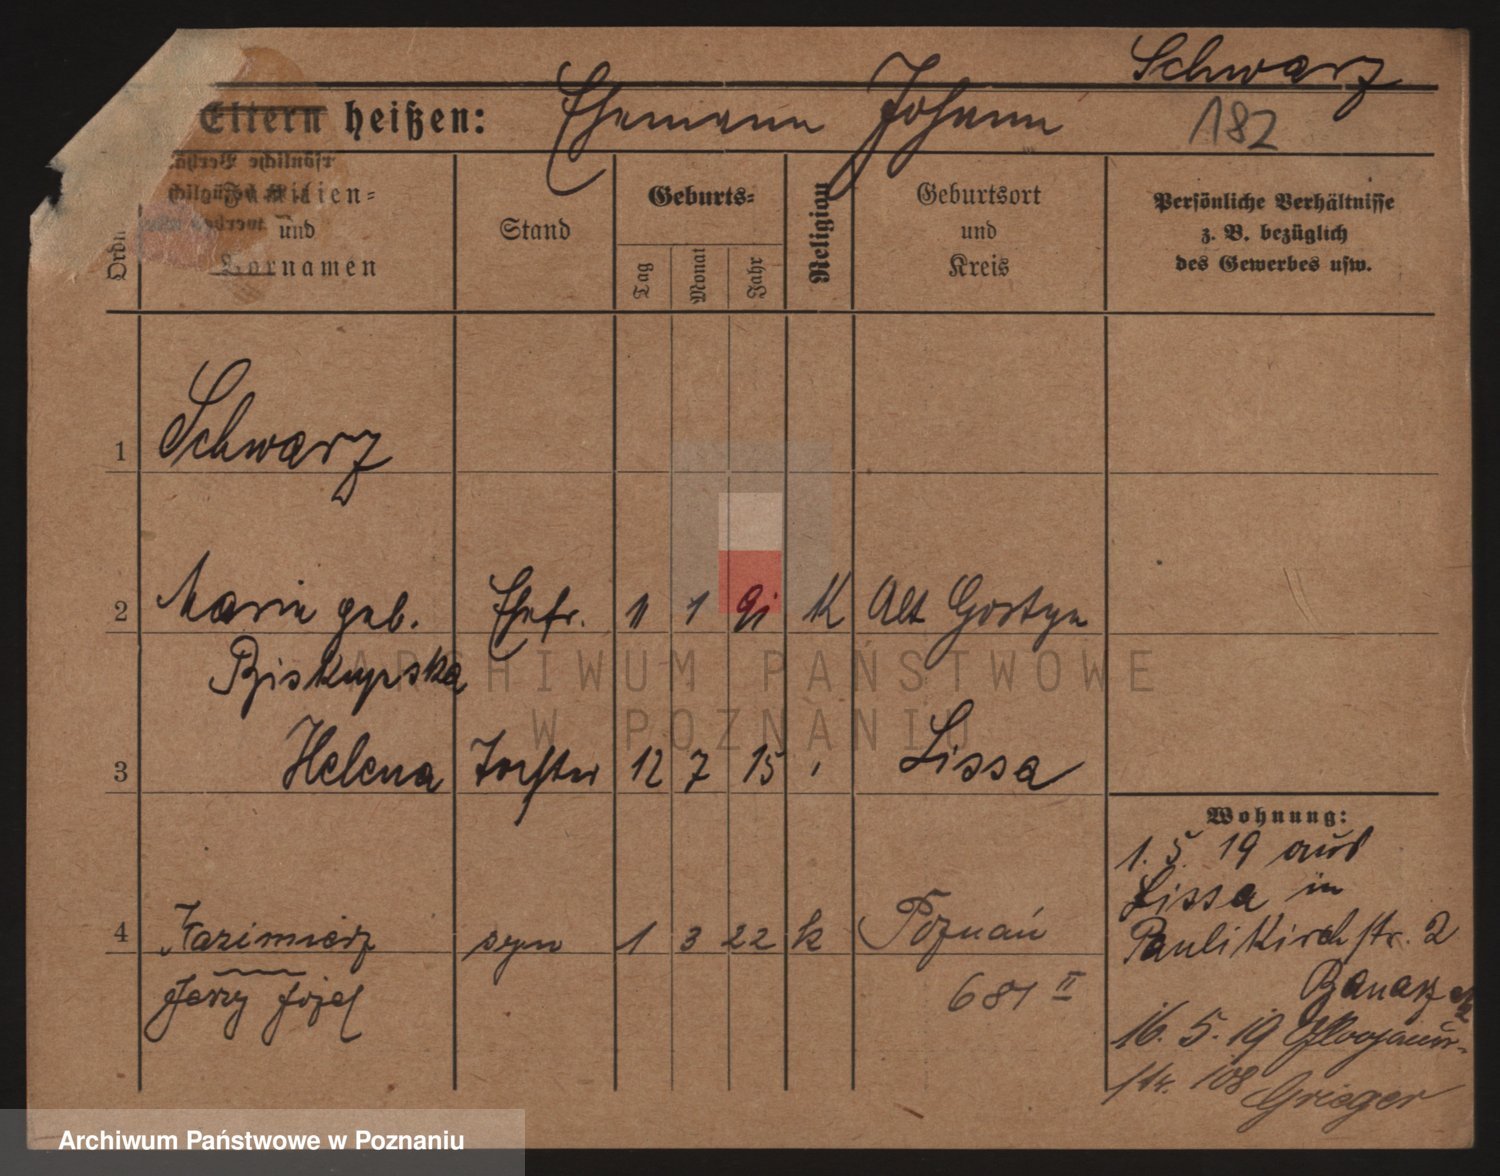 Schwarz
Eltern heißen: Ehemann Johann 182
Ordn
Familien=
und
Vornamen
Stand
Geburts=
Tag
Monat
Jahr
Religion
Geburtsort
und
Kreis
Persönliche Verhältnisse
z. B. bezüglich
des Gewerbes usw.
1 Schwarz
2 Maria geb. Ehefr. 11 1 91 K Alt Gostyn
Biskupska
ARCHIWUM PAŃSTWOWE
W POZNANIU
3 Helena Tochter 12 7 15 Lissa
Wohnung:
1. 5. 19 aus
Lissa in
Paulikirchstr. 2
4 Kazimierz syn 1 3 22 k Poznań
Jerzy Józef
681 II
16. 5. 19
str. 108 Grieger
Archiwum Państwowe w Poznaniu